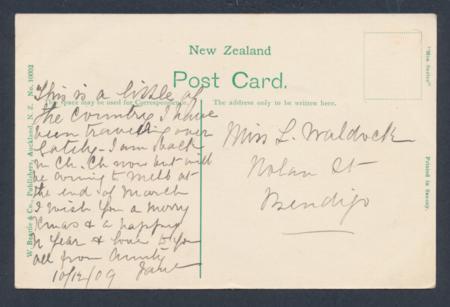 New Zealand
Post Card.
This space may be used for Correspondence.
The address only to be written here.
This is a little of
the country I have
been travelling over
lately. I am back
in Ch. Ch now but will
be coming to Melb at
the end of March
I wish you a merry
Xmas & a happy
N Year & love to you
all from Aunty
10/12/09 Jane
Miss L. Waldock
Nolan St
Bendigo
W. Beattie & Co., Publishers, Auckland, N. Z. No. 10002
"Mia Series"
Printed in Saxony.